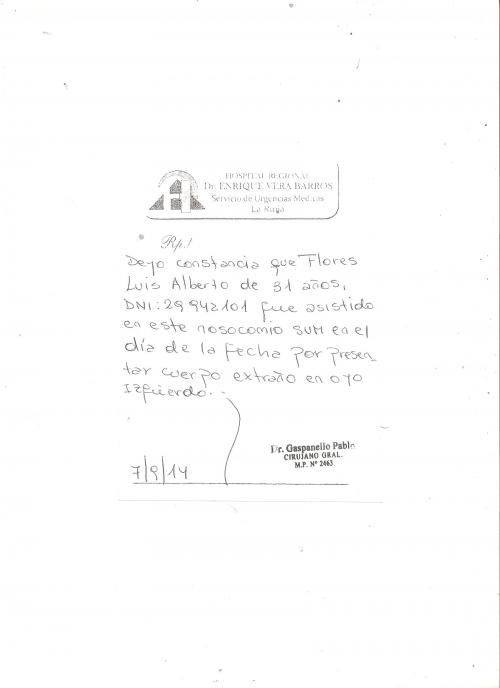 HOSPITAL REGIONAL
Dr. ENRIQUE VERA BARROS
Servicio de Urgencias Medicas
La Rioja
Rp.!
Dejo constancia que Flores
Luis Alberto de 31 años,
DNI: 29942101 fue asistido
en este nosocomio SUM en el
día de la fecha por presen
tar cuerpo extraño en ojo
Izquierdo..
Dr. Gaspanello Pablo
CIRUJANO GRAL.
M.P. Nº 2463
7/9/14